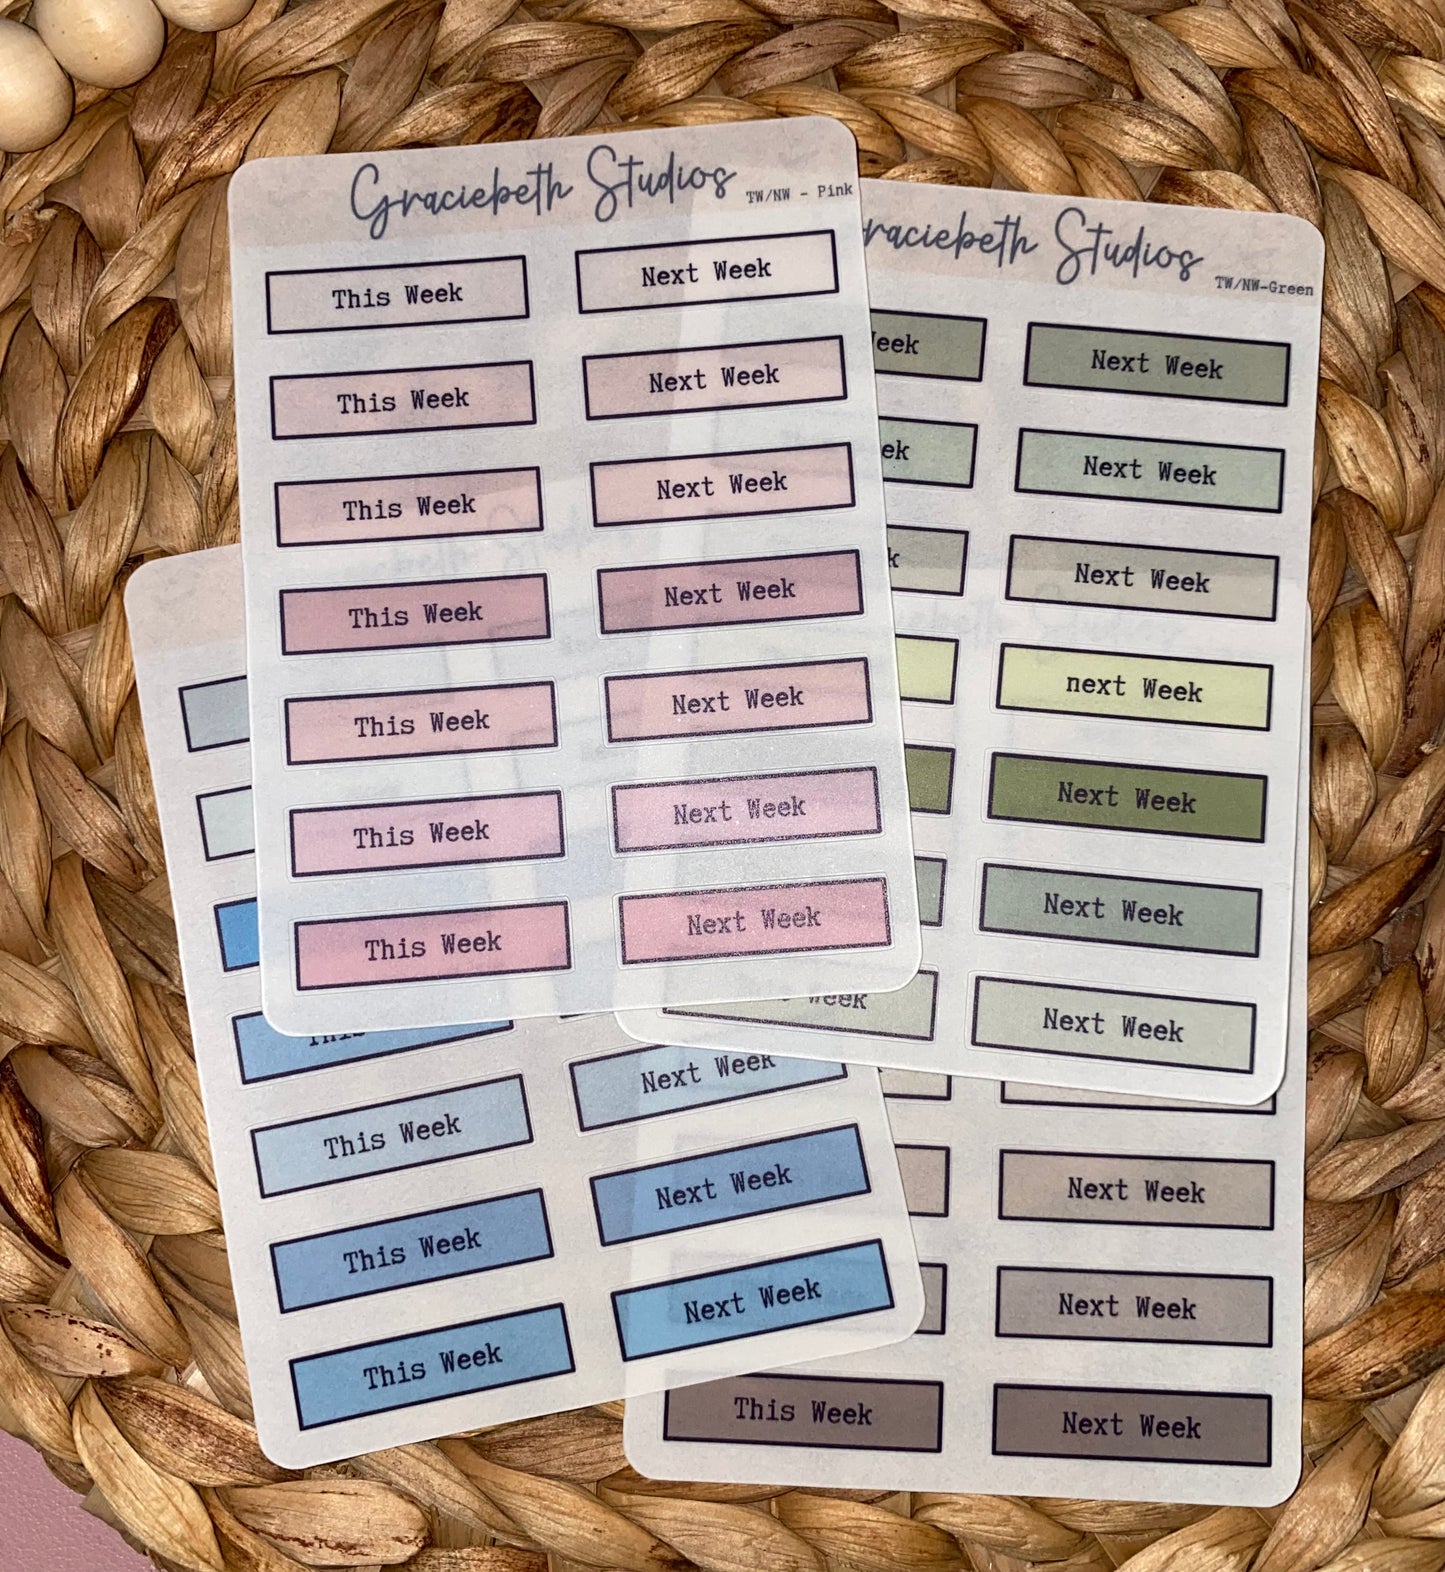 Graciebeth Studios TW/NW - Pink
This Week Next Week
This Week Next Week
This Week Next Week
This Week Next Week
This Week Next Week
This Week Next Week
This Week Next Week
Studios TW/NW-Green
Next Week
Next Week
Next Week
next Week
Next Week
Next Week
Week Next Week
This
Next Week
This Week
This Week Next Week
This Week Next Week
Next Week
Next Week
This Week Next Week